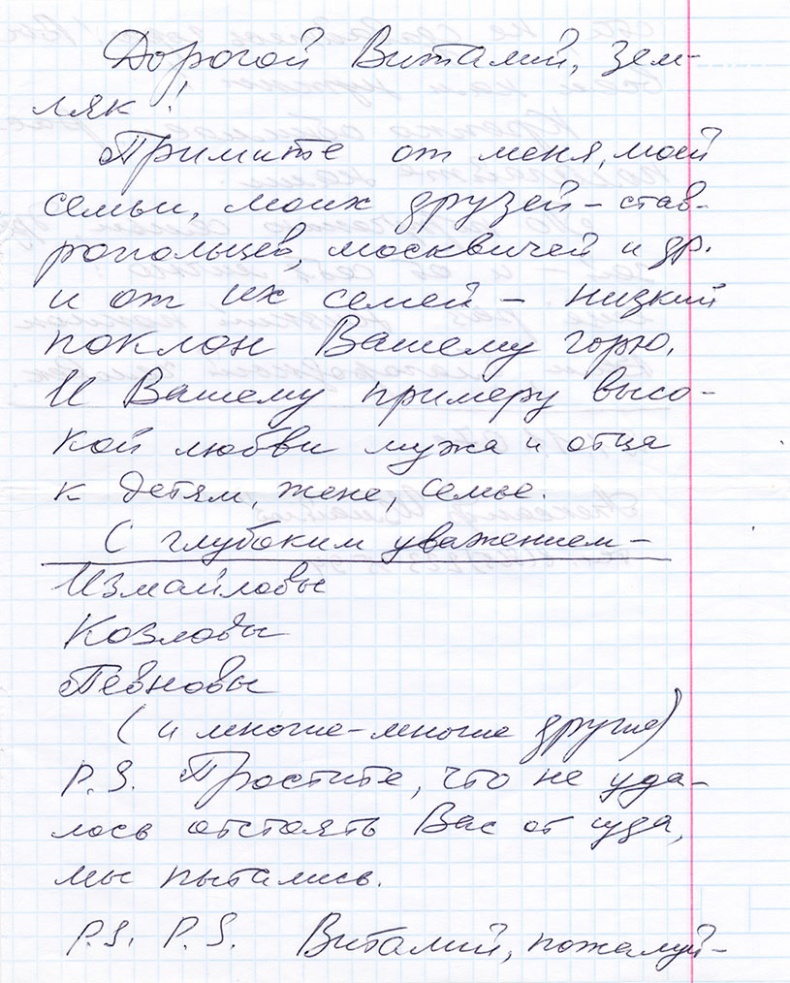 Дорогой Виталий, зем-
ляк!
Примите от меня, моей
семьи, моих друзей – став-
ропольцев, москвичей и др.
и от их семей – низкий
поклон Вашему горю.
И Вашему примеру высо-
кой любви мужа и отца
к детям, жене, семье.
С глубоким уважением –
Измайловы
Козловы
Певновы
(и многие-многие другие)
P.S. Простите, что не уда-
лось отстоять Вас от суда,
мы пытались.
P.S. P.S. Виталий, пожалуй-